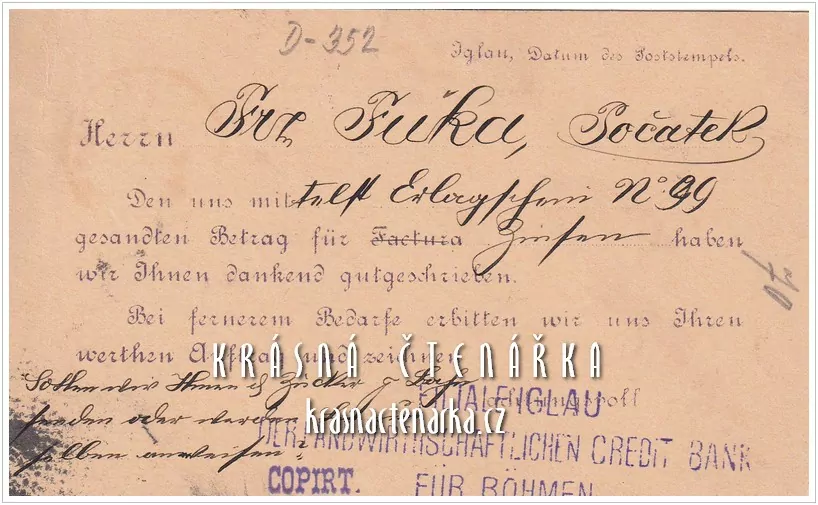 D-352
Iglau, Datum des Poststempels.
Herrn Frz Fuka, Počatek
Den uns mittelst Erlagschein No 99
gesandten Betrag für Factura Zinsen haben
wir Ihnen dankend gutgeschrieben.
Bei fernerem Bedarfe erbitten wir uns Ihren
werthen Auftrag und zeichnen
KRÁSNÁ ČTENÁŘKA
Sollen wir Ihnen Zucker
senden oder
selben anweisen?
krasnactenarka.cz
FILIALE IGLAU
DER LANDWIRTHSCHAFTLICHEN CREDIT BANK
COPIRT. FÜR BÖHMEN